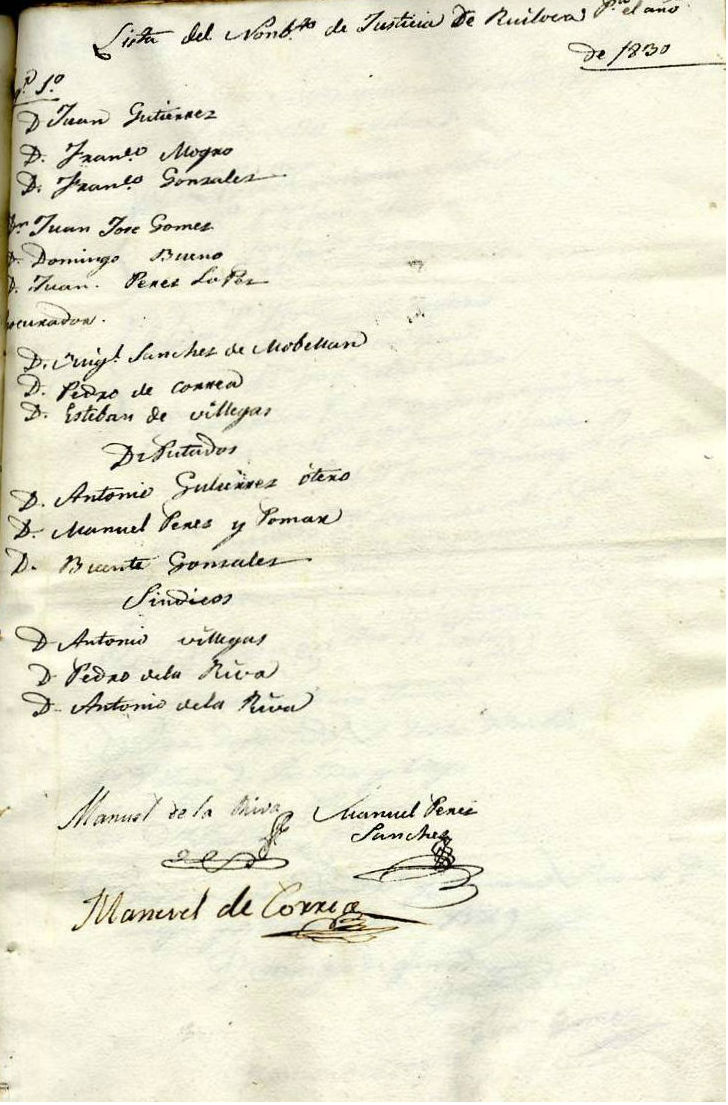 Lista del Nonb.to de Justicia De Ruilova Pa el año
de 1830
1º
D Juan Gutierrez
D. Franco Mogro
D. Franco Gonzalez
Dn Juan Jose Gomez
D. Domingo Bueno
D. Juan. Perez
ocurador.
D. Migl. Sanchez de Mobellan
D. Pedro de Correa
D. Esteban de villegas
Diputados
D. Antonio Gutierrez otero
D. Manuel Perez y Pomar
D. Bicente Gonzalez
Sindicos
D Antonio villegas
D Pedro dela Riva
D Antonio dela Riva
Manuel de la Riva Manuel Perez
Sanchez
Manuel de Correa